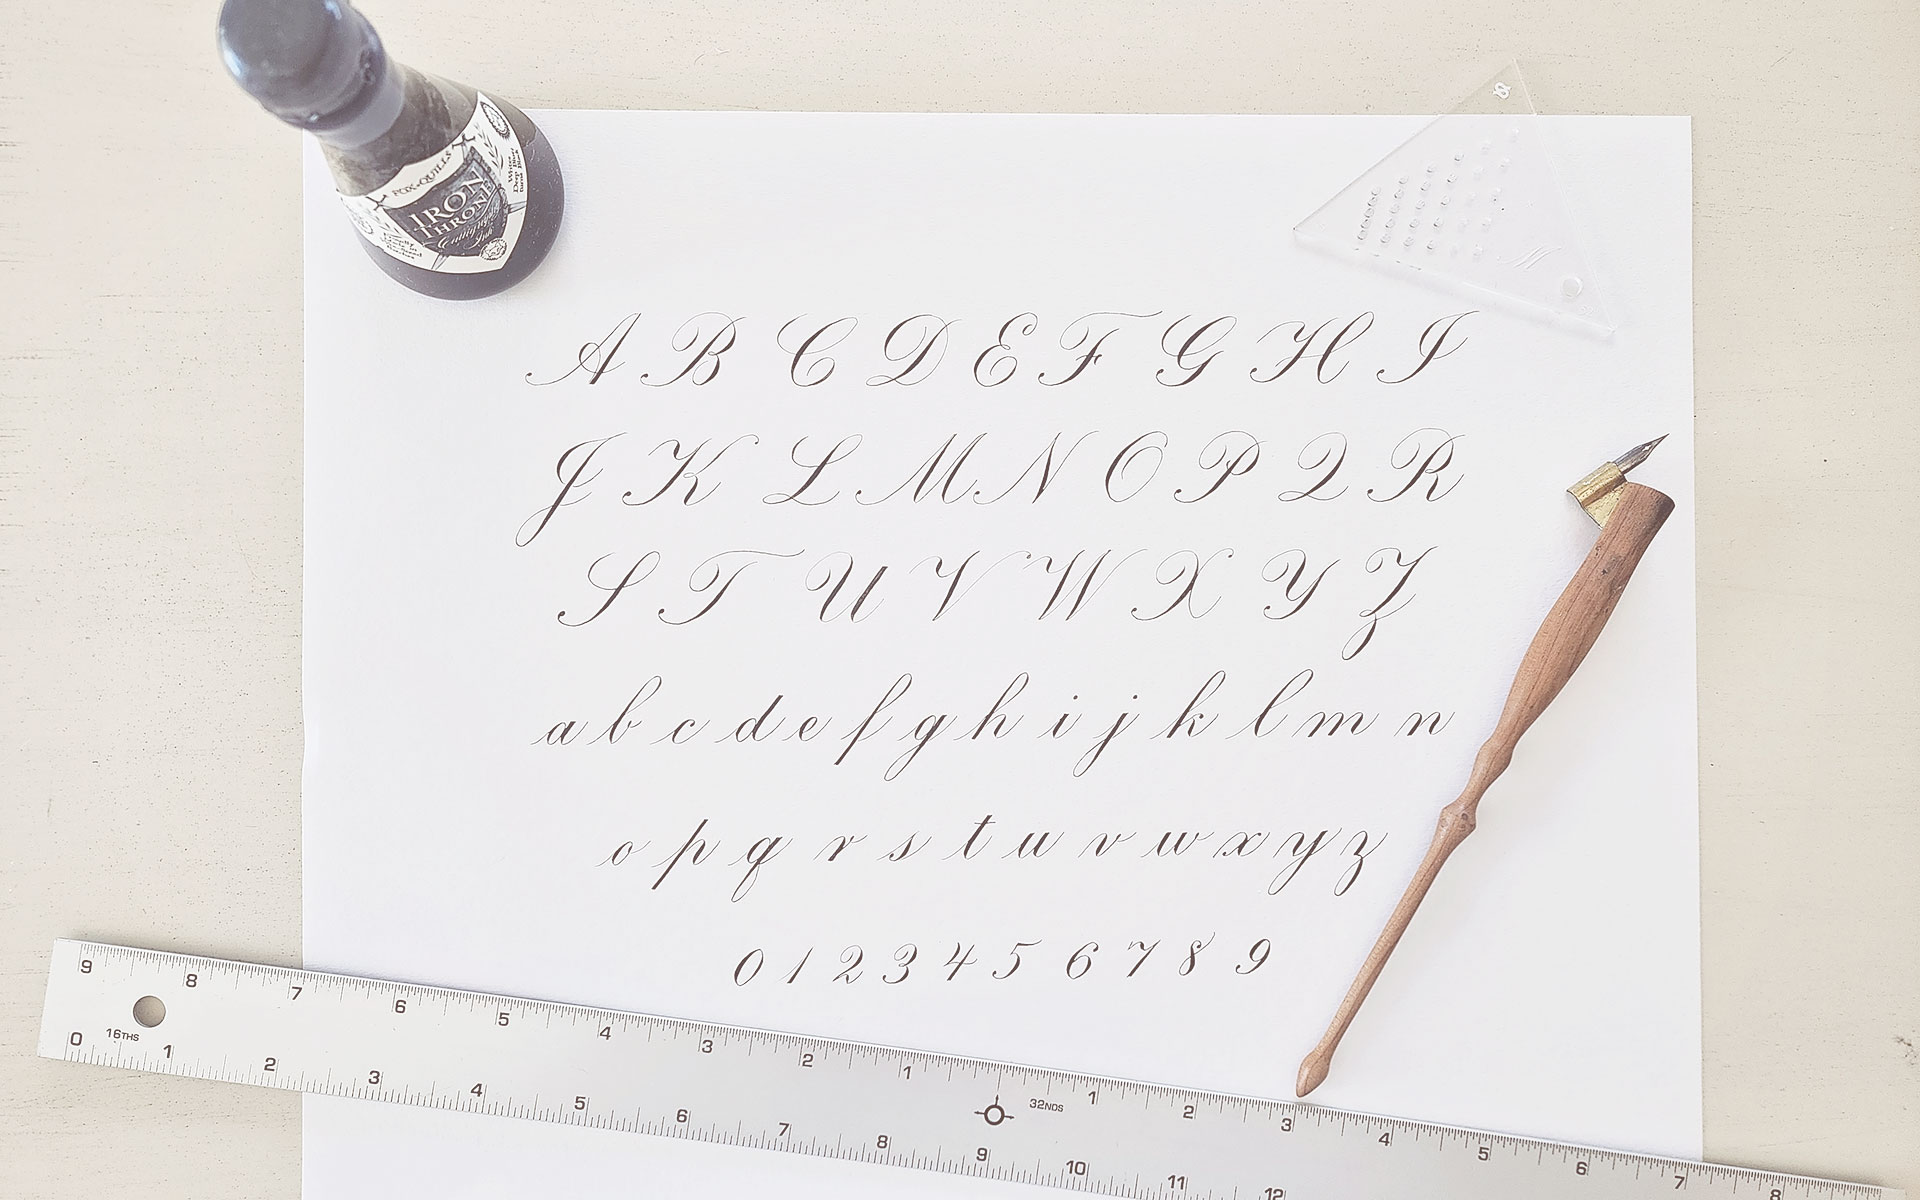 FOX & QUILLS
IRON
THRONE
Calligraphy
Ink
A B C D E F G H I
J K L M N O P Q R
S T U V W X Y Z
a b c d e f g h i j k l m n
o p q r s t u v w x y z
0 1 2 3 4 5 6 7 8 9
9 8 7 6 5 4 3 2 1 32NDS 1 2 3 4 5 6 7 8
0 16THS 1 2 3 4 5 6 7 8 9 10 11 12